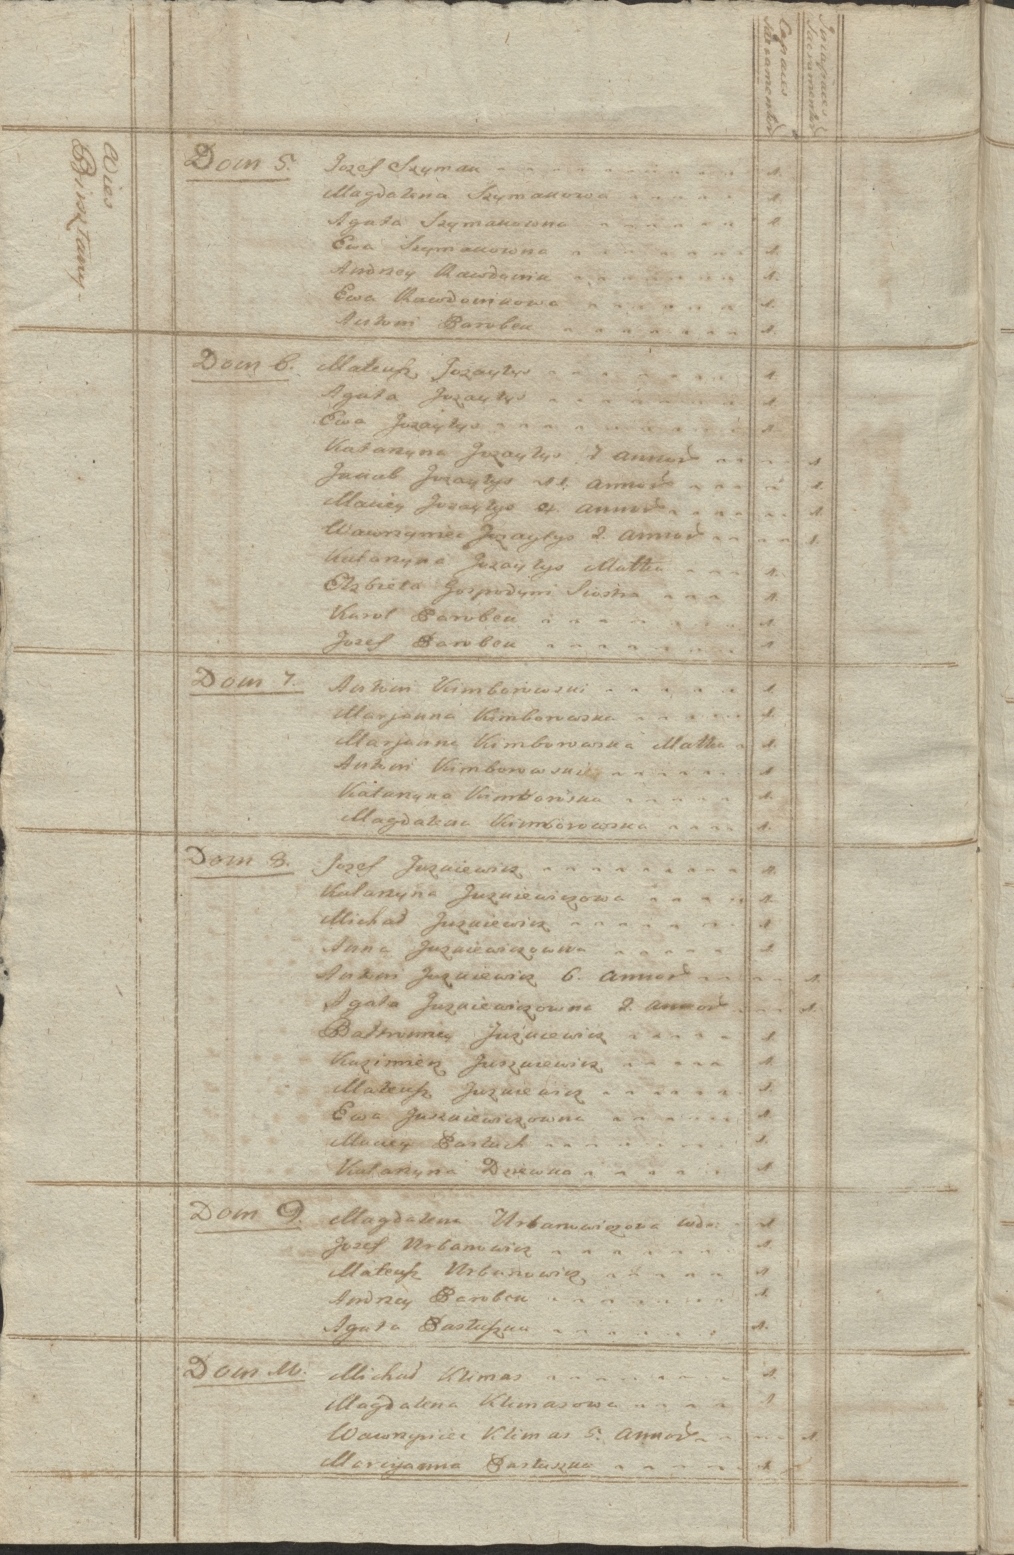 Capaces Sacramentor̃
Incapaces Sacramentor̃
Wies Birsztany
Dom 5. Jozef Szyman 1.
Magdalena Szymanowa 1.
Agata Szymanowna 1.
Ewa Szymanowna 1.
Andrzey Rawdanik 1.
Ewa Rawdanikowa 1.
Antoni Parobek 1.
Dom 6. Mateusz Jozaytys 1.
Agata Jozaytys 1.
Ewa Jozaytys 1.
Katarzyna Jozaytys 7 annor̃ 1
Jakub Jozaytys annor̃ 1.
Maciey Jozaytys 4. annor̃ 1
Wawrzyniec Jozaytys 2. annor̃ 1.
Katarzyna Jozaytys Matka 1.
Elzbieta Gospodyni Siostra 1.
Karol Parobek 1.
Jozef Parobek 1
Dom 7. Antoni Kimborowski 1.
Marjanna Kimborowska 1.
Marjanna Kimborowska Matka 1.
Antoni Kimborowski 1
Katarzyna Kimborowska 1.
Magdalena Kimborowska 1.
Dom 8. Jozef Juzniewicz 1.
Katarzyna Juzniewiczowa 1.
Michał Juzniewicz 1
Anna Juzniewiczowna 1
Antoni Juzniewicz 6. annor̃ 1.
Agata Juzniewiczowna 2. annor̃ 1.
Bałtromiey Juzniewicz 1
Kazimierz Juszniewicz 1.
Mateusz Juzniewicz 1
Ewa Juszniewiczowna 1.
Maciey Pastuch 1.
Katarzyna Dziewka 1.
Dom 9. Magdalena Urbanowiczowa wdo: 1
Jozef Urbanowicz 1.
Mateusz Urbanowicz 1
Andrzey Parobek 1
Agata Pastuszka 1.
Dom 10. Michał Klimas 1.
Magdalena Klimasowa 1
Wawrzyniec Klimas 5. annor̃ 1
Marcyanna Pastuszka 1